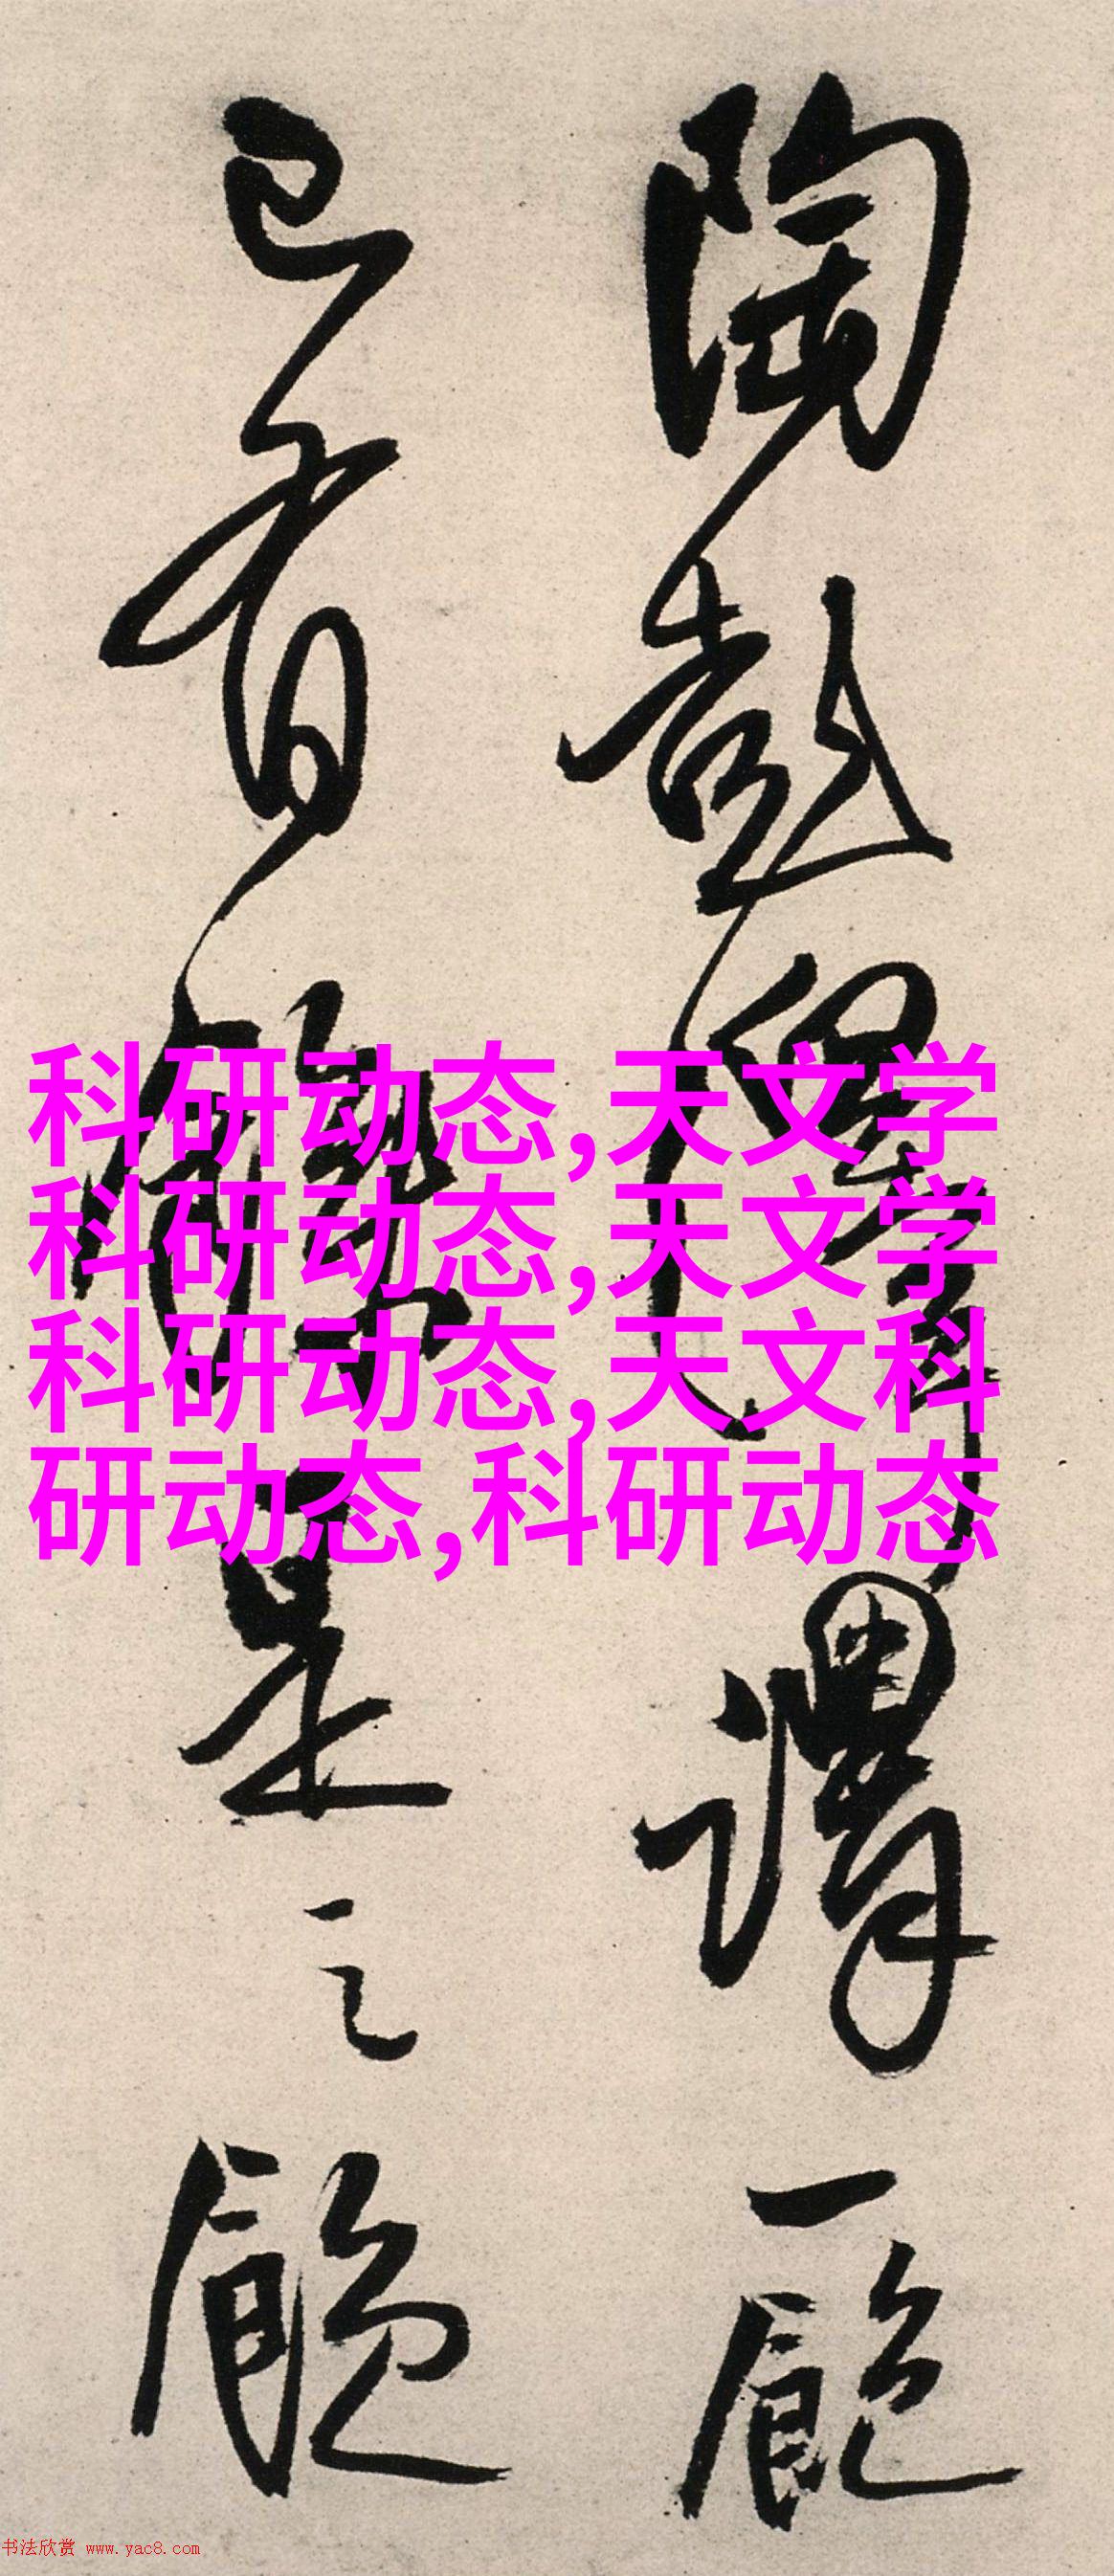 陶彭澤謂一飽
已有是之
科研动态,天文学
科研动态,天文学
科研动态,天文科
研动态,科研动态
书法欣赏 www.yac8.com